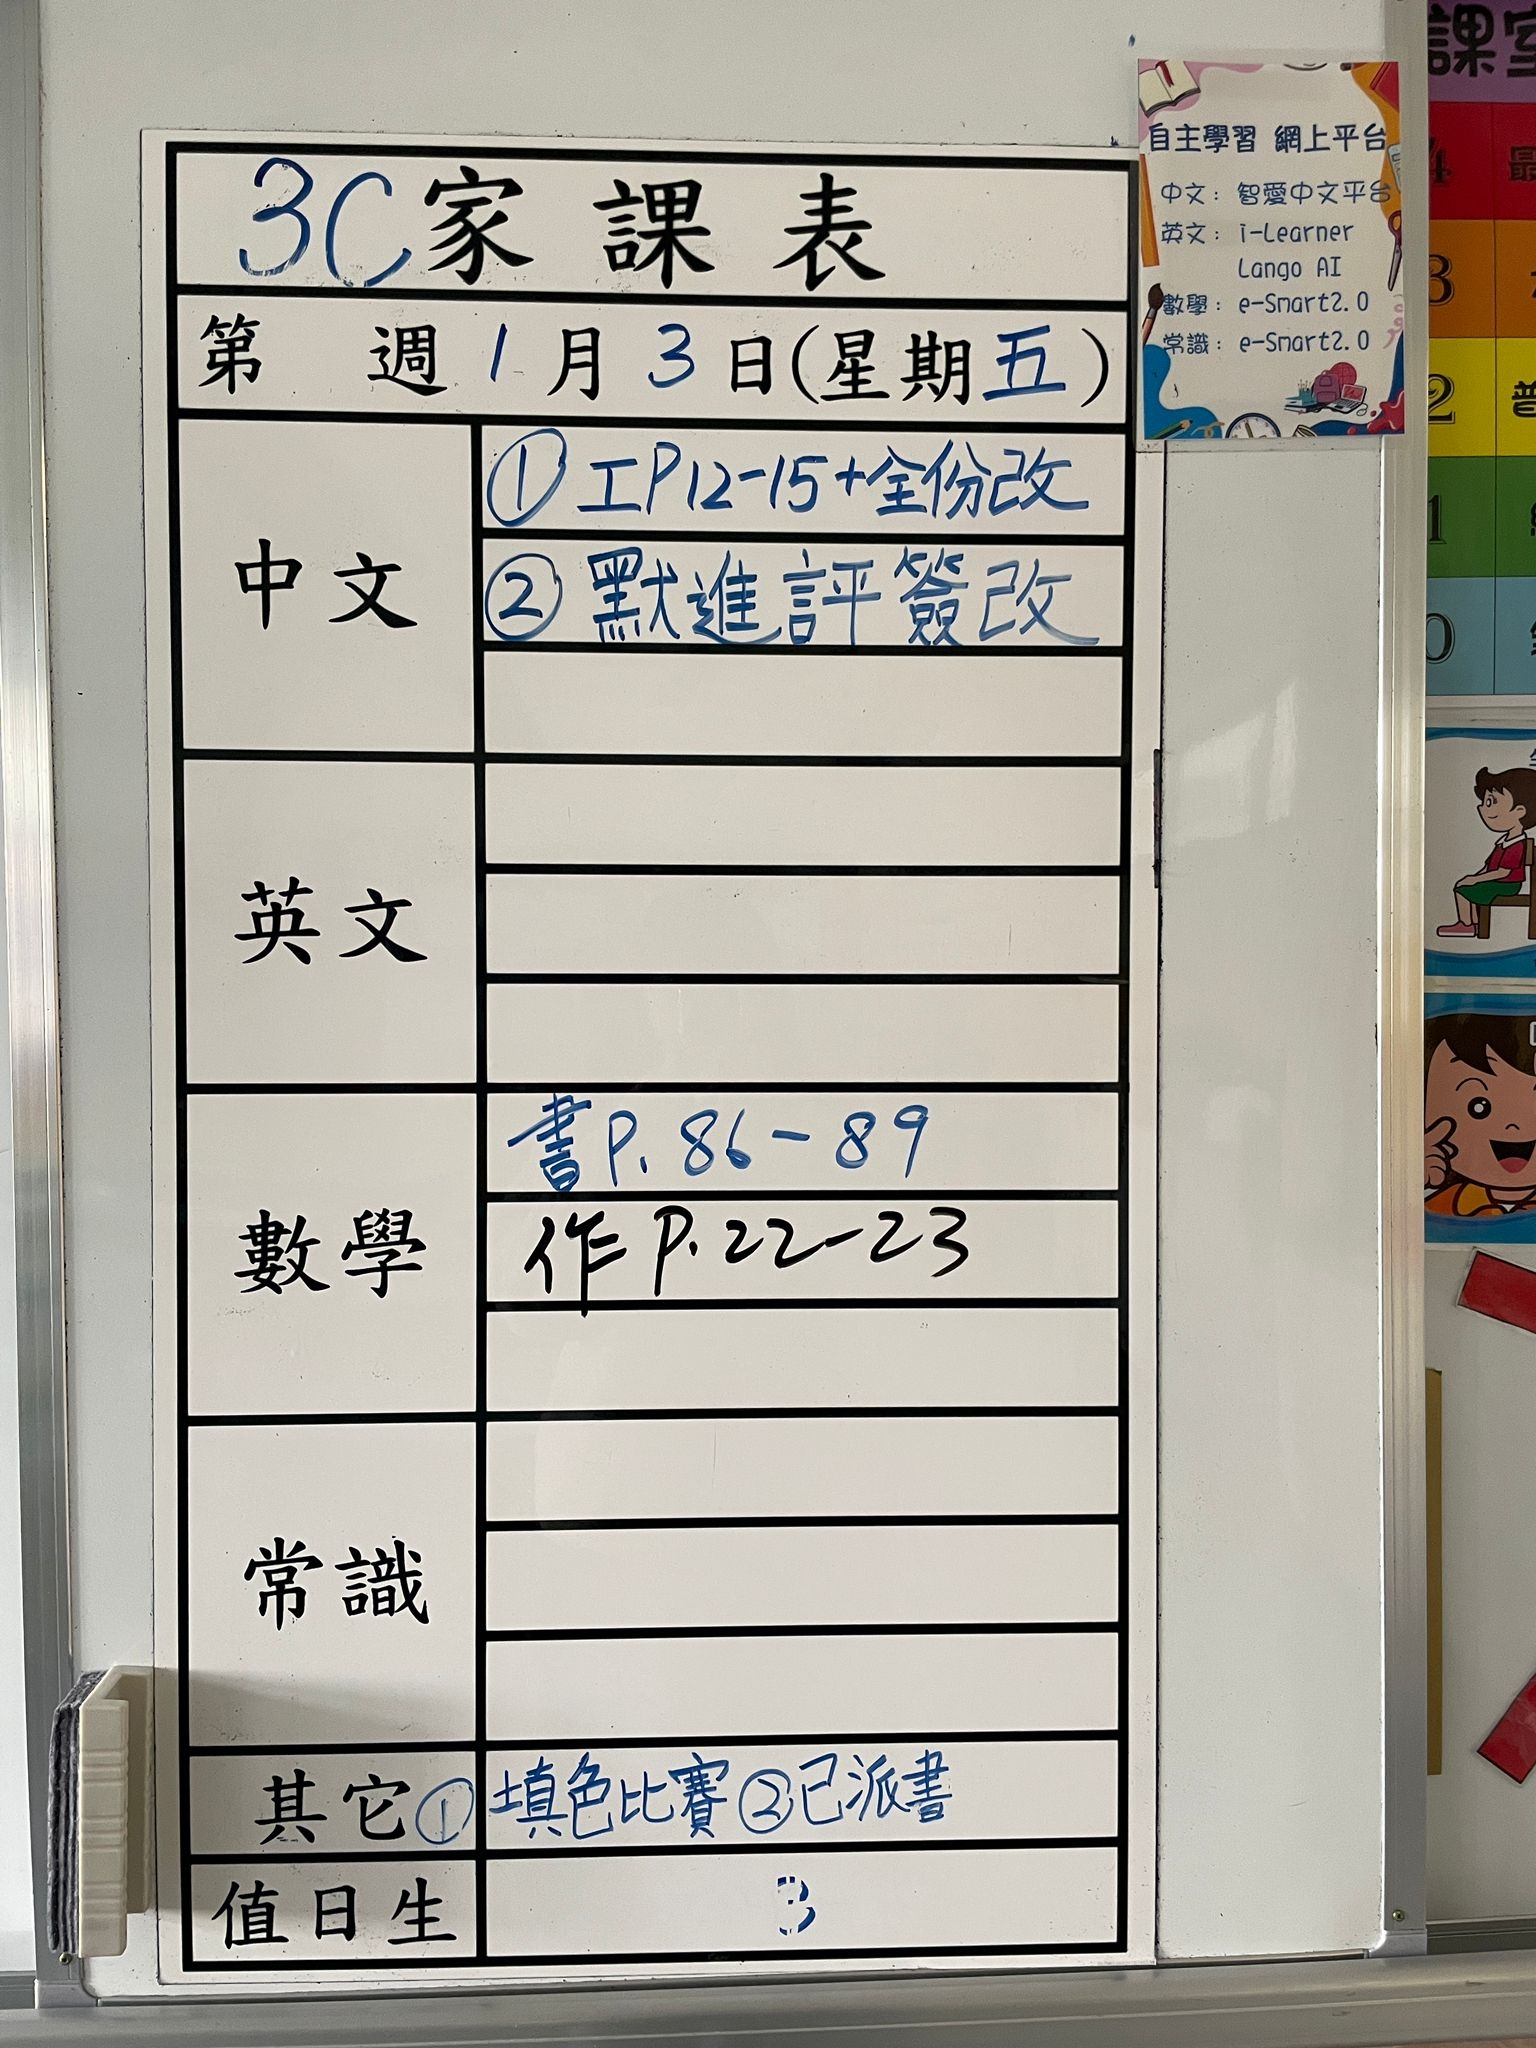 3C家課表
第 週 1月3日(星期五)
中文
① 工P12-15+全份改
② 默進評簽改
英文
數學
書P.86-89
作P.22-23
常識
其它 ①填色比賽 ②已派書
值日生 3
自主學習 網上平台
中文: 智愛中文平台
英文: i-Learner
Lango AI
數學: e-Smart2.0
常識: e-Smart2.0
課室
4 最
3
2 普
1
0